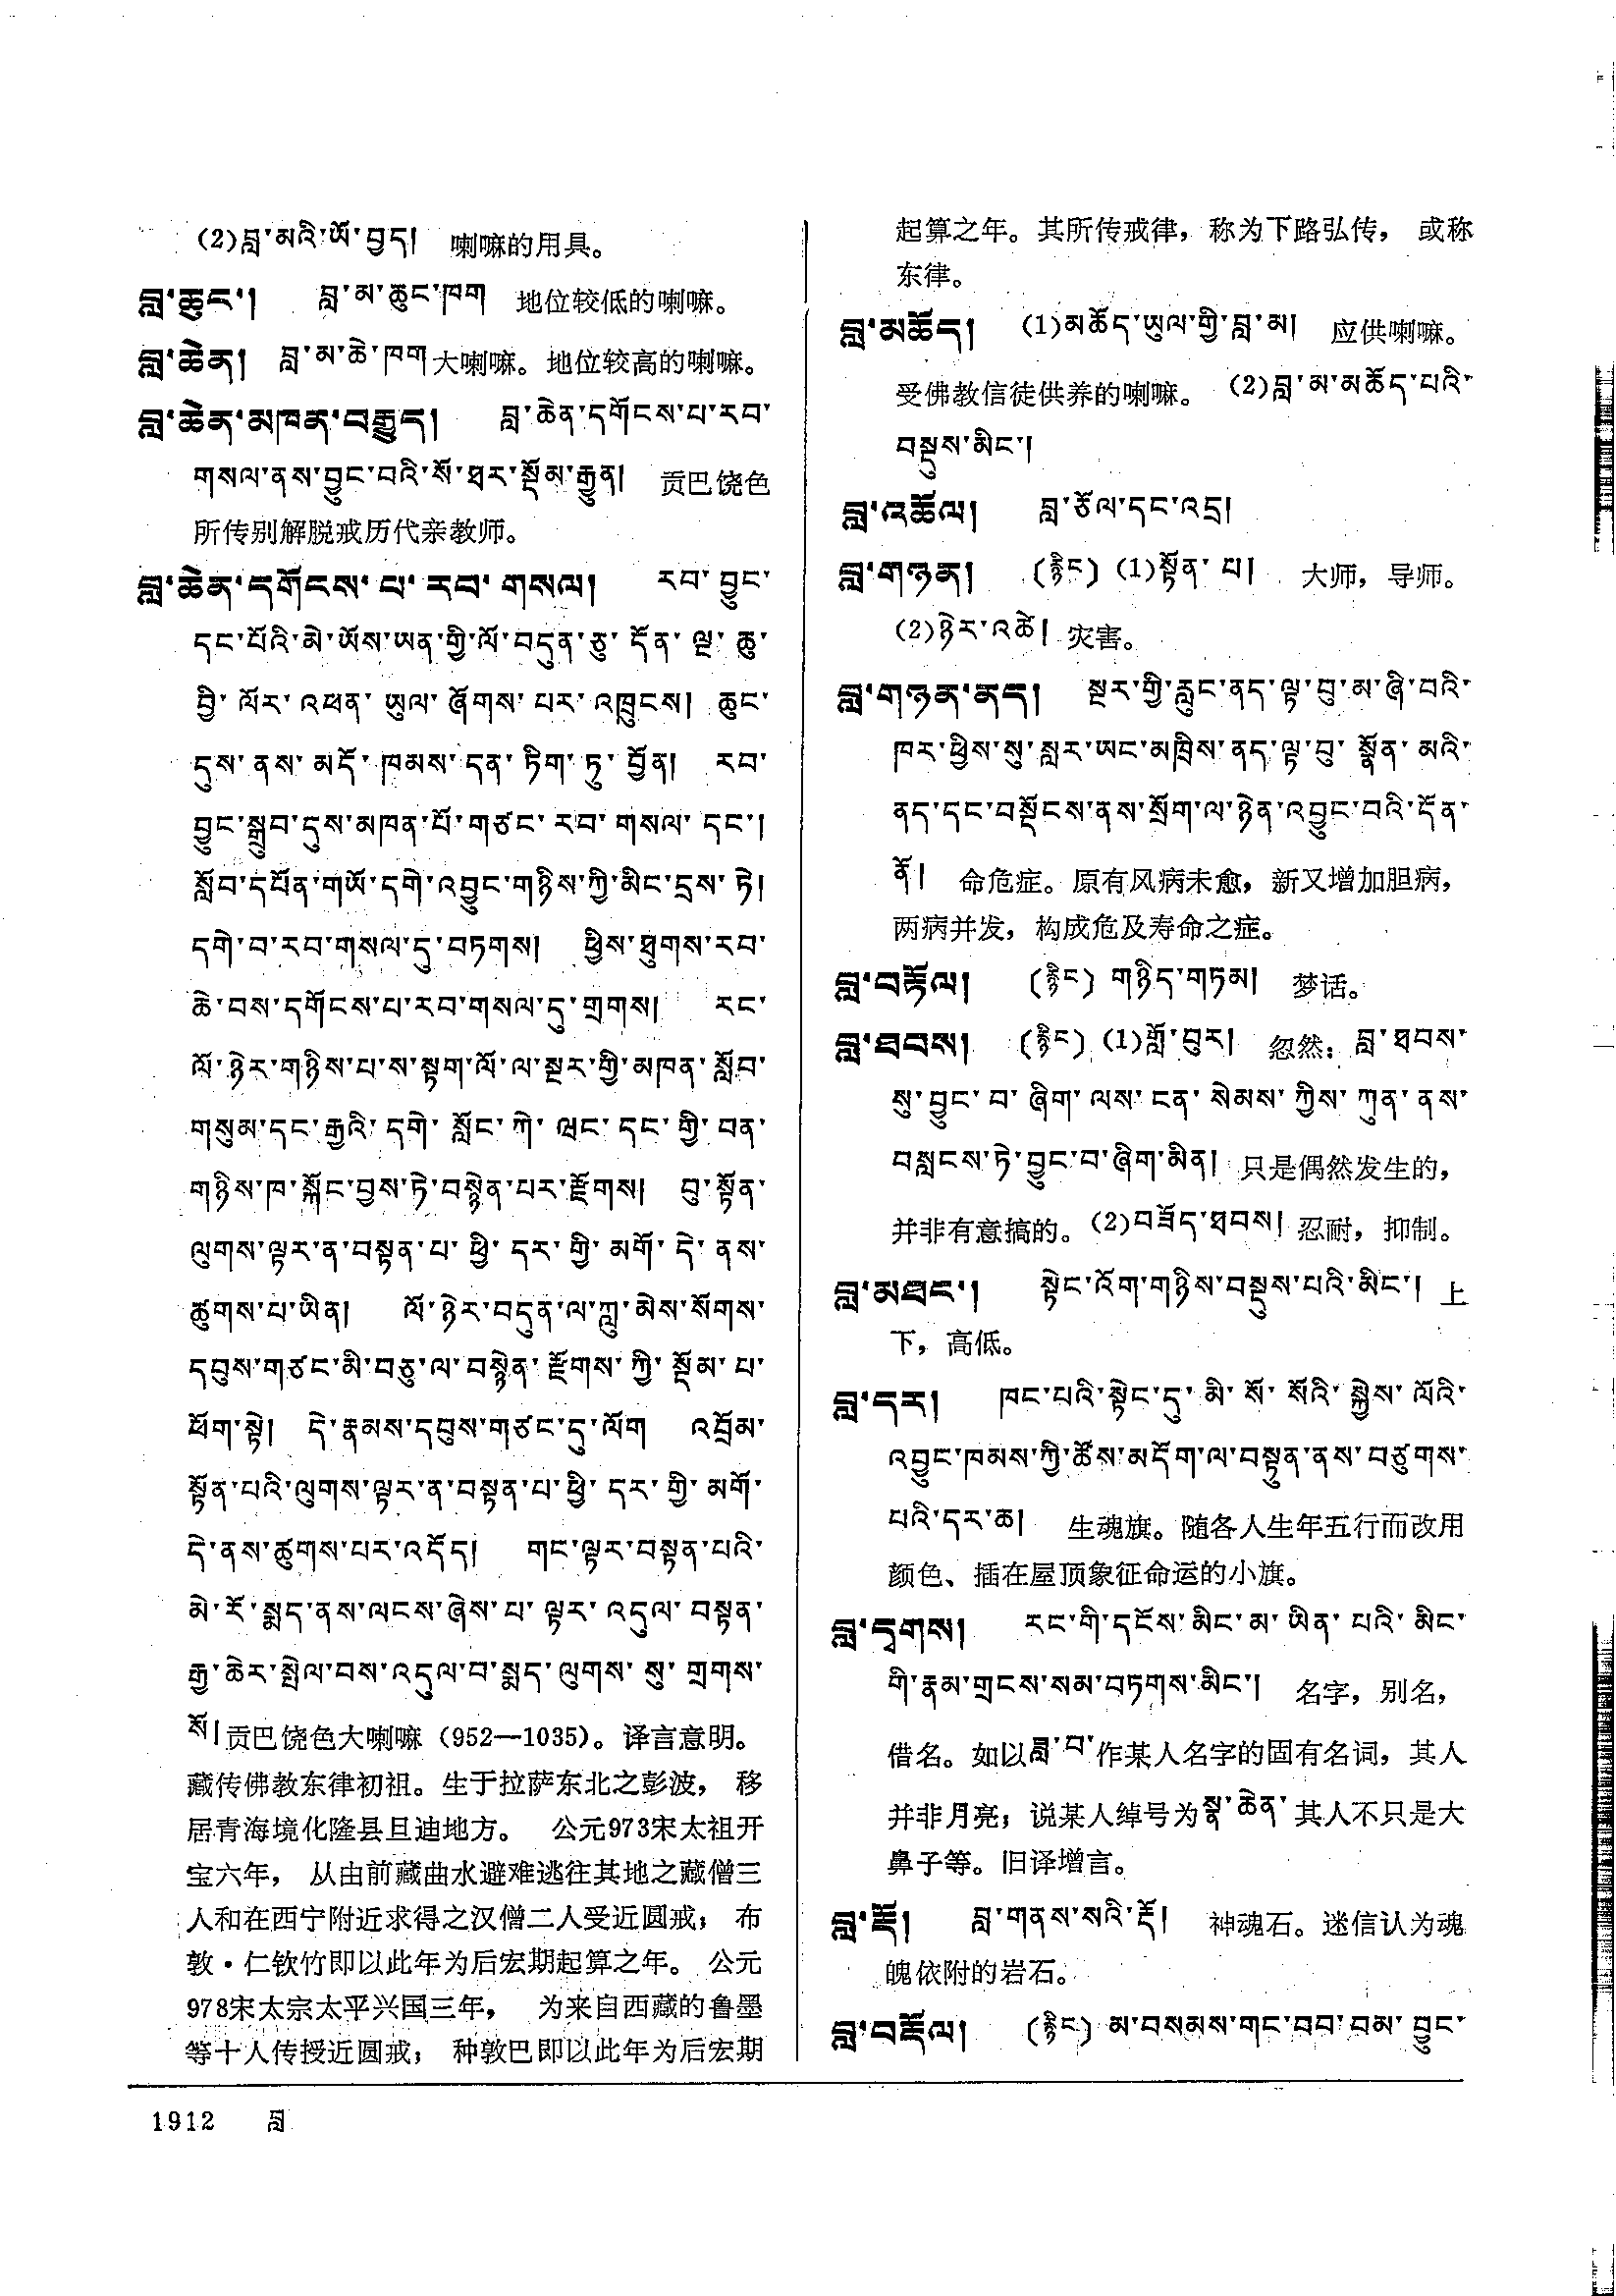 (2)བླ་མའི་ཡོ་བྱད། 喇嘛的用具。
བླ་ཆུང་། བླ་མ་ཆུང་ཁག 地位较低的喇嘛。
བླ་ཆེན། བླ་མ་ཆེ་ཁག大喇嘛。地位较高的喇嘛。
བླ་ཆེན་མཁན་བརྒྱུད། བླ་ཆེན་དགོངས་པ་རབ་
གསལ་ནས་བྱུང་བའི་སོ་ཐར་སྡོམ་རྒྱུན། 贡巴饶色
所传别解脱戒历代亲教师。
བླ་ཆེན་དགོངས་པ་རབ་གསལ། རབ་བྱུང་
དང་པོའི་མེ་ཡོས་ཡན་གྱི་ལོ་བདུན་ཅུ་དོན་ལྔ་ཆུ་
བྱི་ལོར་འཕན་ཡུལ་ཞོགས་པར་འཁྲུངས། ཆུང་
དུས་ནས་མདོ་ཁམས་དན་ཏིག་ཏུ་བྱོན། རབ་
བྱུང་སྒྲུབ་དུས་མཁན་པོ་གཙང་རབ་གསལ་དང་།
སློབ་དཔོན་གཡོ་དགེ་འབྱུང་གཉིས་ཀྱི་མིང་དྲས་ཏེ།
དགེ་བ་རབ་གསལ་དུ་བཏགས། ཕྱིས་ཐུགས་རབ་
ཆེ་བས་དགོངས་པ་རབ་གསལ་དུ་གྲགས། རང་
ལོ་ཉེར་གཉིས་པ་ས་སྟག་ལོ་ལ་སྔར་གྱི་མཁན་སློབ་
གསུམ་དང་རྒྱའི་དགེ་སློང་ཀེ་ཝང་དང་གྱི་བན་
གཉིས་ཁ་སྐོང་བྱས་ཏེ་བསྙེན་པར་རྫོགས། བུ་སྟོན་
ལུགས་ལྟར་ན་བསྟན་པ་ཕྱི་དར་གྱི་མགོ་དེ་ནས་
ཚུགས་པ་ཡིན། ལོ་ཉེར་བདུན་ལ་ཀླུ་མེས་སོགས་
དབུས་གཙང་མི་བཅུ་ལ་བསྙེན་རྫོགས་ཀྱི་སྡོམ་པ་
ཕོག་སྟེ། དེ་རྣམས་དབུས་གཙང་དུ་ལོག འབྲོམ་
སྟོན་པའི་ལུགས་ལྟར་ན་བསྟན་པ་ཕྱི་དར་གྱི་མགོ་
དེ་ནས་ཚུགས་པར་འདོད། གང་ལྟར་བསྟན་པའི་
མེ་རོ་སྨད་ནས་ལངས་ཞེས་པ་ལྟར་འདུལ་བསྟན་
རྒྱ་ཆེར་སྤེལ་བས་འདུལ་བ་སྨད་ལུགས་སུ་གྲགས་
སོ།贡巴饶色大喇嘛（952—1035)。译言意明。
藏传佛教东律初祖。生于拉萨东北之彭波， 移
居青海境化隆县旦迪地方。 公元973宋太祖开
宝六年， 从由前藏曲水避难逃往其地之藏僧三
人和在西宁附近求得之汉僧二人受近圆戒； 布
敦·仁钦竹即以此年为后宏期起算之年。 公元
978宋太宗太平兴国三年， 为来自西藏的鲁墨
等十人传授近圆戒； 种敦巴即以此年为后宏期
起算之年。其所传戒律，称为下路弘传， 或称
东律。
བླ་མཆོད། (1)མཆོད་ཡུལ་གྱི་བླ་མ། 应供喇嘛。
受佛教信徒供养的喇嘛。 (2)བླ་མ་མཆོད་པའི་
བསྡུས་མིང་།
བླ་འཚོལ། བླ་ཙོལ་དང་འདྲ།
བླ་གཉན། (རྙིང) (1)སྟོན་པ། 大师，导师。
(2)ཉེར་འཚེ། 灾害。
བླ་གཉན་ནད། སྔར་གྱི་རླུང་ནད་ལྟ་བུ་མ་ཞི་བའི་
ཁར་ཕྱིས་སུ་སླར་ཡང་མཁྲིས་ནད་ལྟ་བུ་སྣོན་མའི་
ནད་དང་བསྡོངས་ནས་སྲོག་ལ་ཉེན་འབྱུང་བའི་དོན་
ནོ། 命危症。原有风病未愈，新又增加胆病，
两病并发，构成危及寿命之症。
བླ་བརྟོལ། (རྙིང) གཉིད་གཏམ། 梦话。
བླ་ཐབས། (རྙིང) (1)གློ་བུར། 忽然：བླ་ཐབས་
སུ་བྱུང་བ་ཞིག་ལས་ངན་སེམས་ཀྱིས་ཀུན་ནས་
བསླངས་ཏེ་བྱུང་བ་ཞིག་མིན། 只是偶然发生的，
并非有意搞的。(2)བཟོད་ཐབས། 忍耐，抑制。
བླ་མཐང་། སྟེང་འོག་གཉིས་བསྡུས་པའི་མིང་། 上
下，高低。
བླ་དར། ཁང་པའི་སྟེང་དུ་མི་སོ་སོའི་སྐྱེས་ལོའི་
འབྱུང་ཁམས་ཀྱི་ཚོས་མདོག་ལ་བསྟུན་ནས་བཙུགས་
པའི་དར་ཆ། 生魂旗。随各人生年五行而改用
颜色、插在屋顶象征命运的小旗。
བླ་དྭགས། རང་གི་དངོས་མིང་མ་ཡིན་པའི་མིང་
གི་རྣམ་གྲངས་སམ་བཏགས་མིང་། 名字，别名，
借名。如以ཟླ་བ་作某人名字的固有名词，其人
并非月亮；说某人绰号为སྣ་ཆེན་其人不只是大
鼻子等。旧译增言。
བླ་རྡོ། བླ་གནས་སའི་རྡོ། 神魂石。迷信认为魂
魄依附的岩石。
བླ་བརྡོལ། (རྙིང) མ་བསམས་གང་བབ་བམ་བྱུང་
1912 བླ